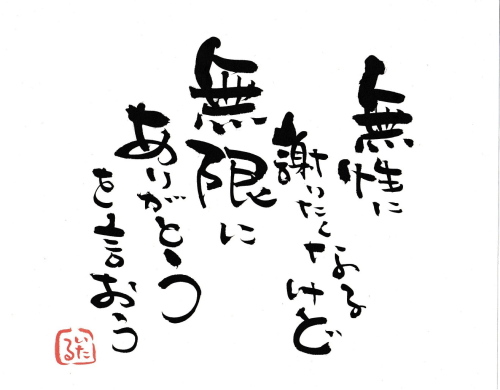 無性に
謝りたくなる
けど
無限に
ありがとう
を言おう
いた
る